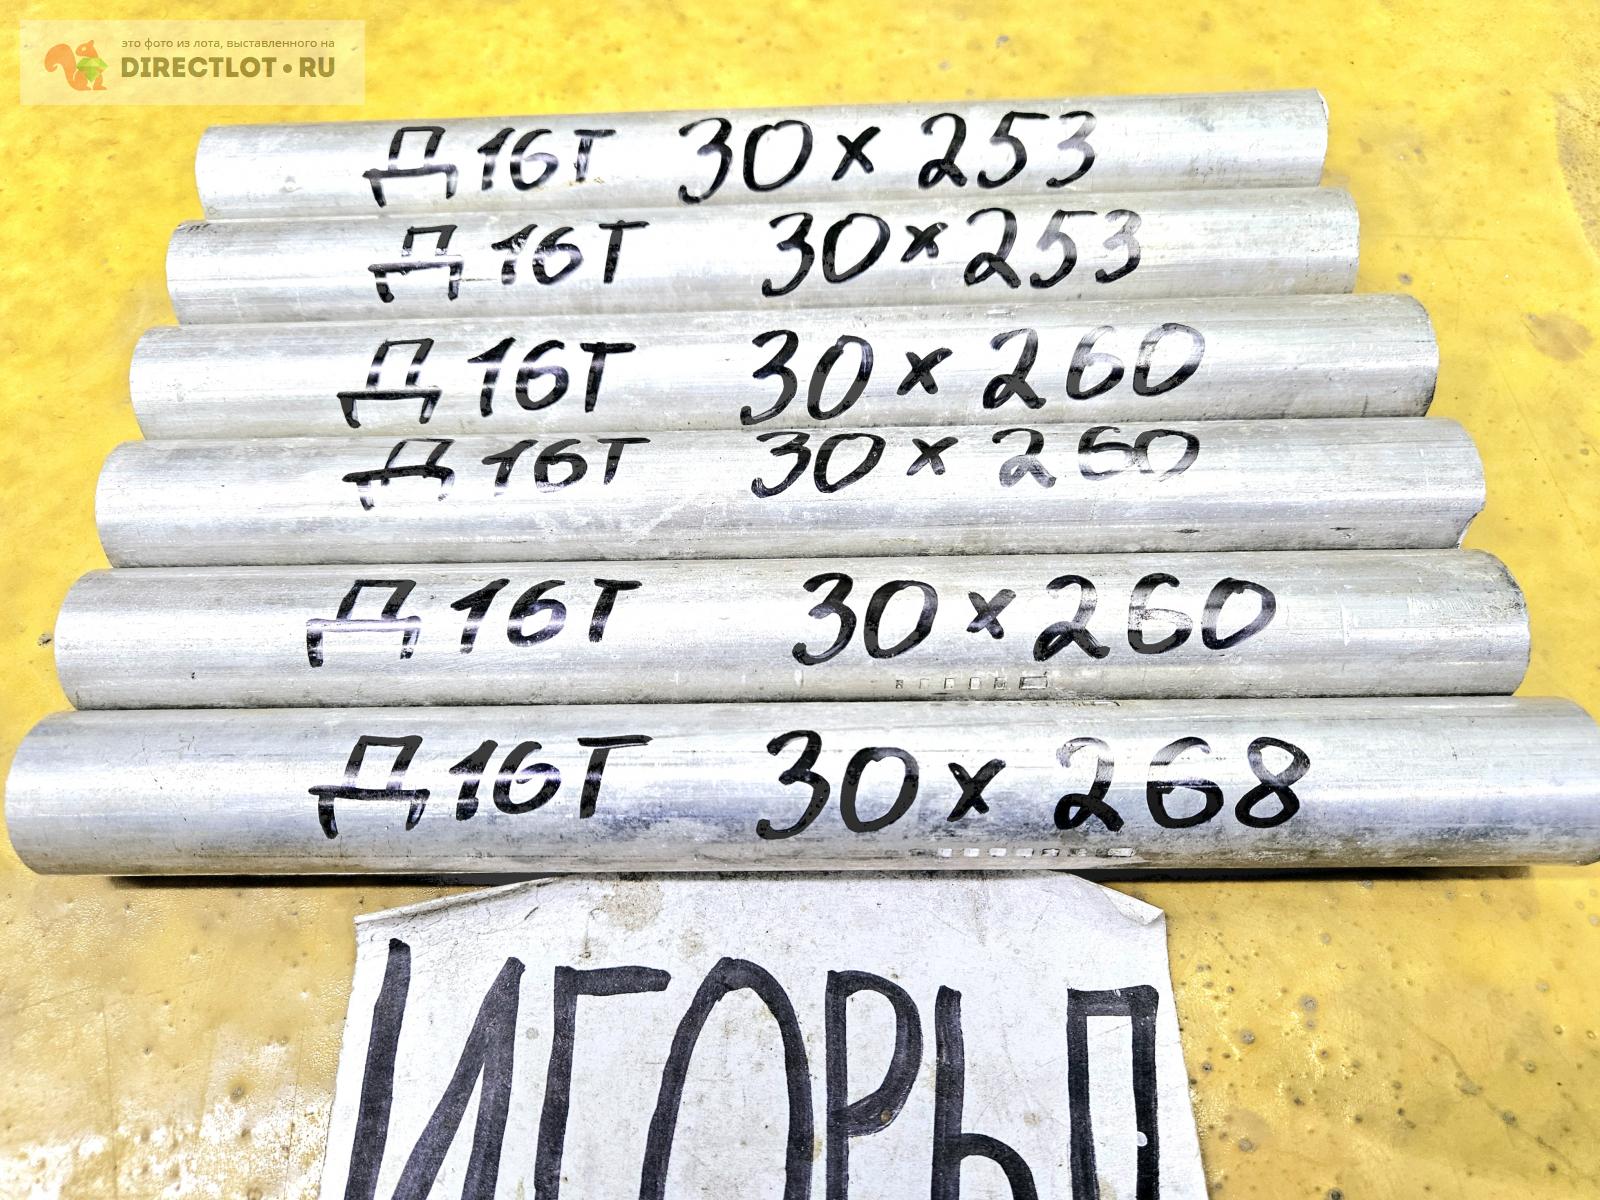 это фото из лота, выставленного на
DIRECTLOT•RU
Д16Т 30 x 253
Д16Т 30 x 253
Д16Т 30 x 260
Д16Т 30 x 260
Д16Т 30 x 260
Д16Т 30 x 268
ИГОРЬП